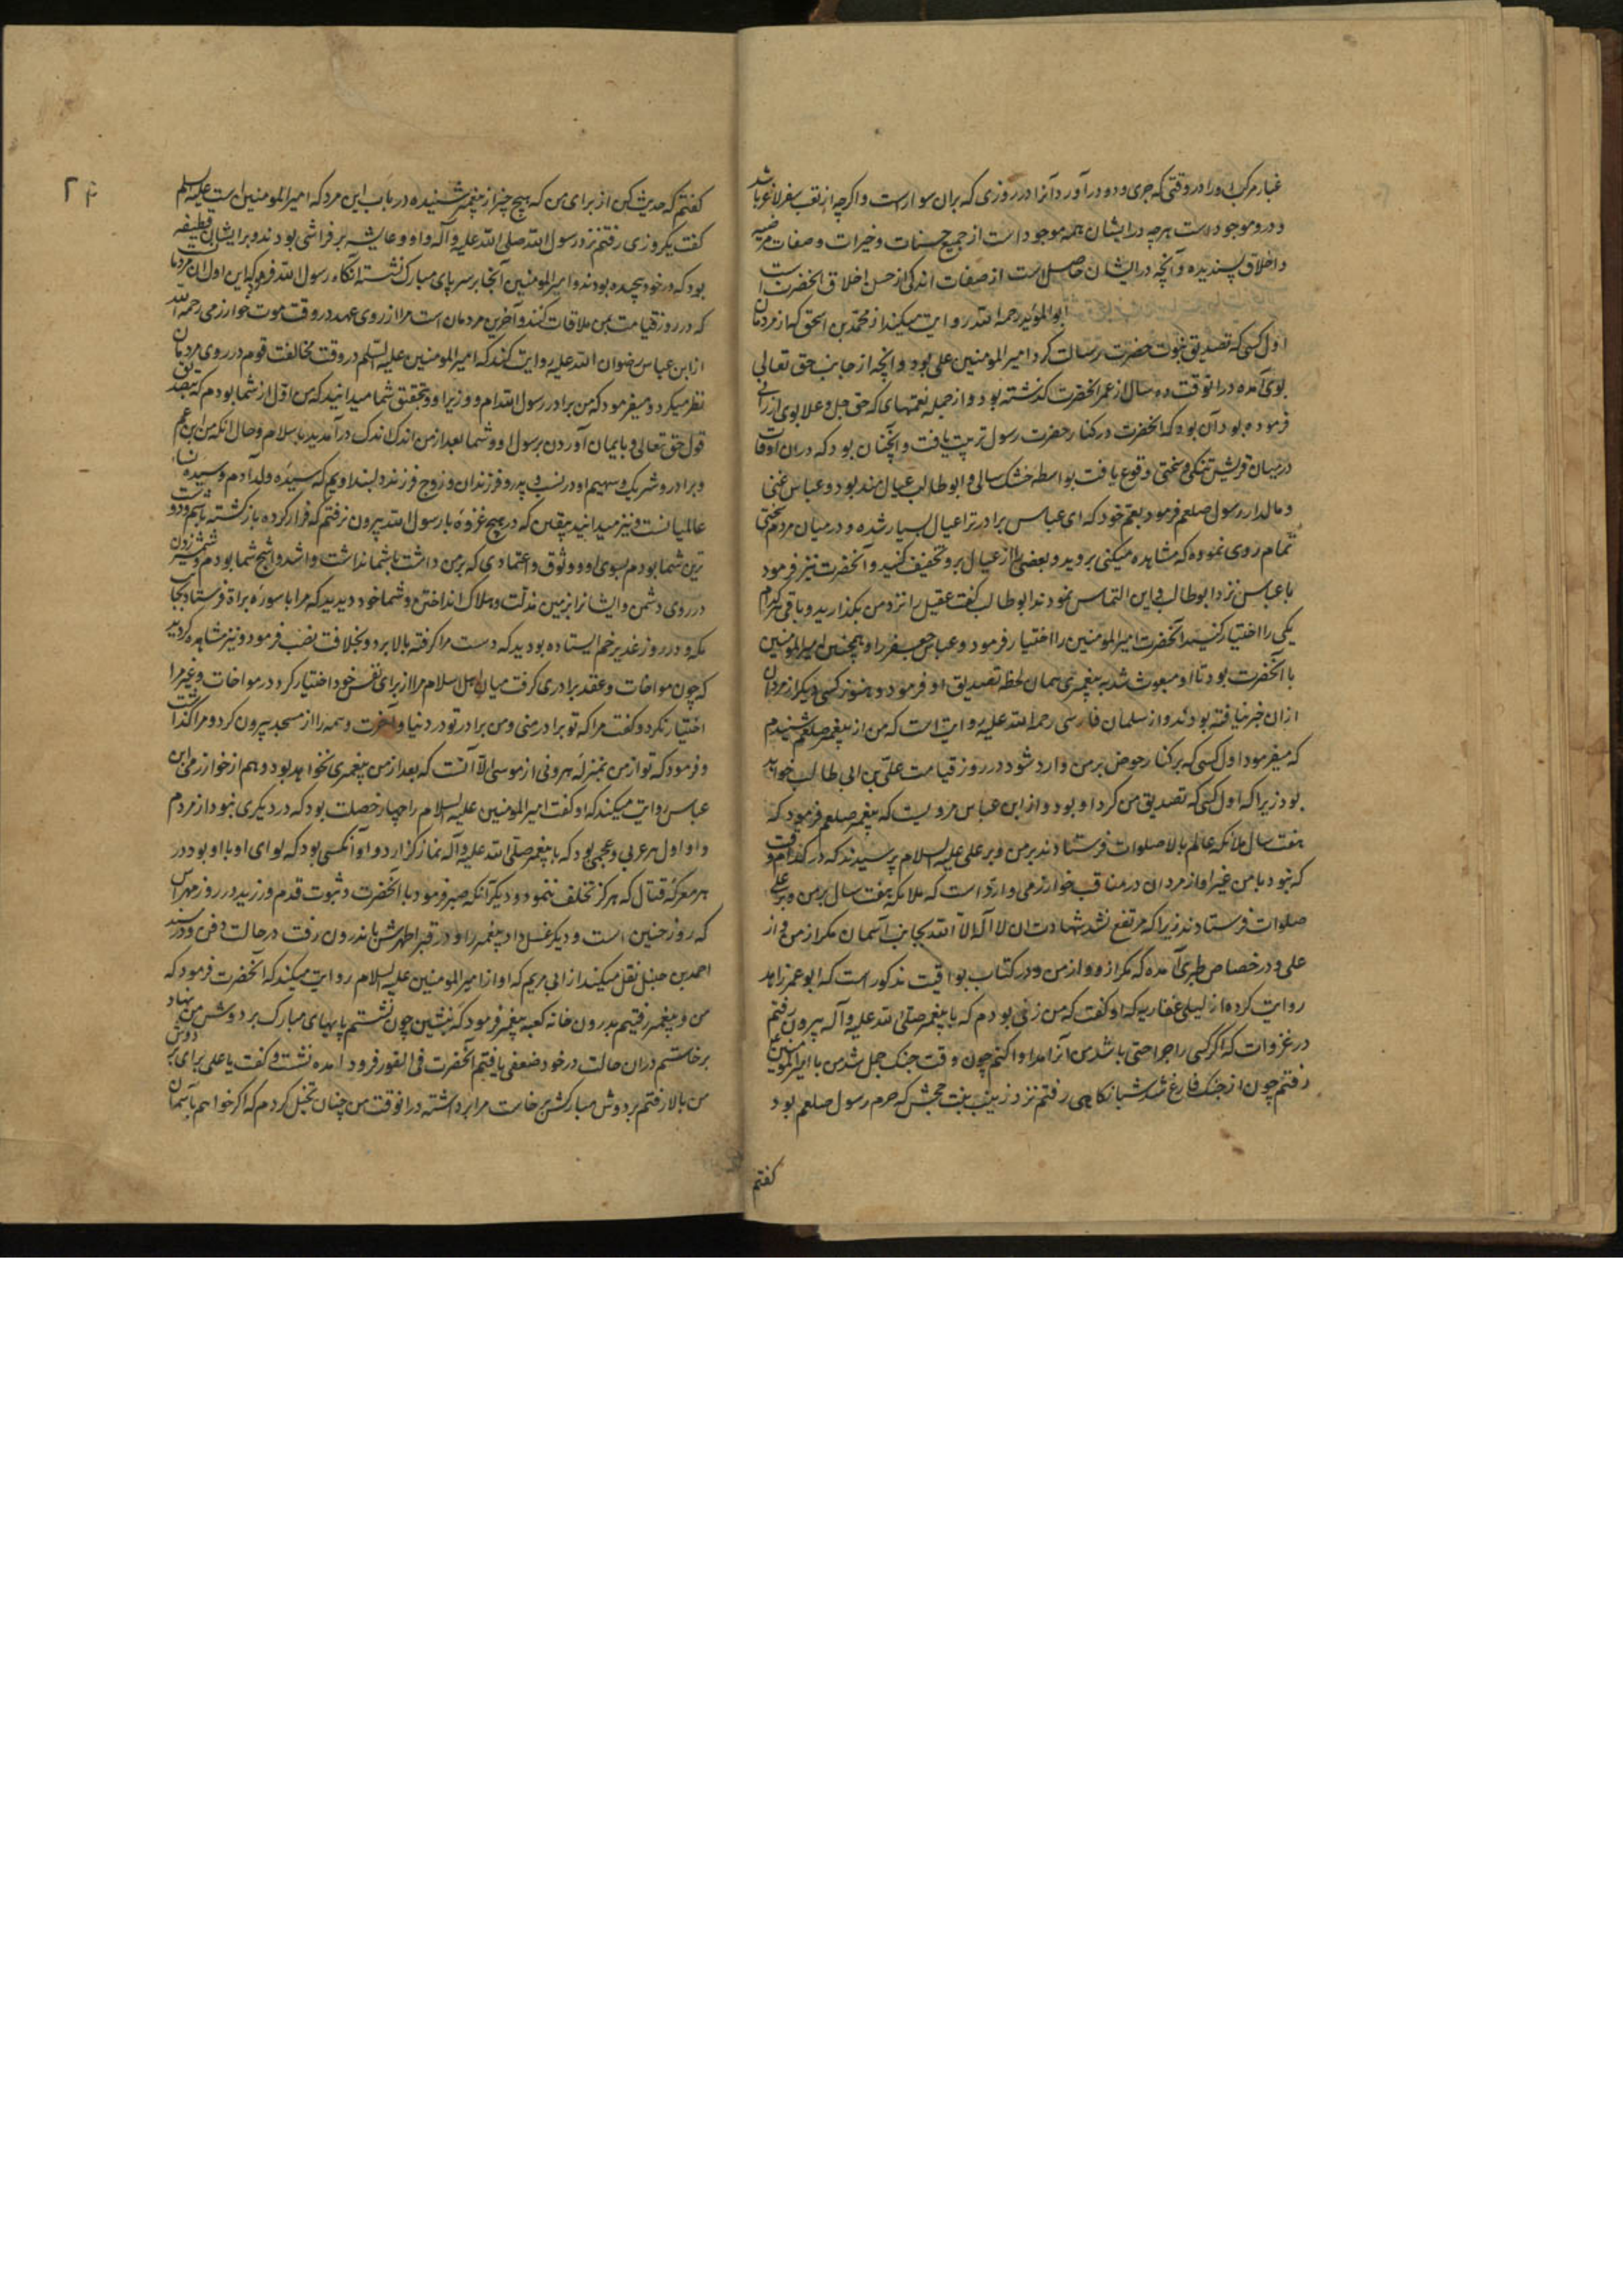 غبار مرکب او را در وقتی که جری و دو در آورد آنرا در روزی که بران سوارست و اکرچه از تعب سفر لاغر باشد
و درو موجودست هرچه در ایشان همه موجود است از جمیع حسنات و خیرات و صفات مرضیه
و اخلاق پسندیده و آنچه در ایشان حاصل است از صفات اندکی از حسن اخلاق آنحضرت است
ابو المؤید رحمه الله روایت میکند از محمد بن اسحق که از مردمان
اول کسی که تصدیق نبوت حضرت رسالت کرد امیر المومنین علی بود و آنچه از جانب حق تعالی
بوی آمده در انوقت ده سال از عمر آنحضرت گذشته بود و از جمله نعمتهای که حق جل و علا بوی ارزانی
فرموده بود آن بود که آنحضرت در کنار حضرت رسول تربیت یافت و آنچنان بود که دران اوقات
در میان قریش تنکی و سختی وقوع یافت بواسطه خشک سالی و ابو طالب عیال مند بود و عباس غنی
و مالدار رسول صلعم فرمود بعم خود که ای عباس برادر ترا عیال بسیار شده و در میان مردم سختی
تمام روی نموده که مشاهده میکنی بروید و بعضی را از عیال برو تخفیف کنید و آنحضرت نیز فرمود
با عباس نزد ابو طالب این التماس نمودند ابو طالب کفت عقیل را نزد من بکذارید و باقی هر کدام
یکی را اختیار کنید آنحضرت امیر المومنین را اختیار فرمود و عباس جعفر را و همچنین امیر المومنین
با آنحضرت بود تا او مبعوث شد به پیغمبری همان لحظه تصدیق او فرمود و هنوز کسی دیکر از مردمان
ازان خبر نیافته بودند و از سلمان فارسی رحمه الله علیه روایت است که من از پیغمبر صلعم شنیدم
که میفرمود اول کسی که بر کنار حوض بر من وارد شود در روز قیامت علی بن ابی طالب خواهد
بود زیرا که اول کسی که تصدیق من کرد او بود و از ابن عباس مرویست که پیغمبر صلعم فرمود که
هفت سال ملائکه عالم بالا صلوات فرستادند بر من و بر علی علیه السلام پرسیدند که در کدام وقت
که نبود با من غیر او از مردان در مناقب خوارزمی وارد است که ملائکه هفت سال بر من و بر علی
صلوات فرستادند زیرا که مرتفع نشد شهادت ان لا اله الا الله بجانب آسمان مکر از من و از
علی و در خصایص طبری آمده که مکر ازو و از من و در کتاب یواقیت مذکور است که ابو عمر زاهد
روایت کرده از لیلی غفاریه که او کفت که من زنی بودم که با پیغمبر صلی الله علیه و آله بیرون رفتم
در غزوات که اکر کسی را جراحتی باشد من آنرا مداوا کنم چون وقت جنک جمل شد من با امیر المومنین
رفتم چون از جنک فارغ شد شبانکاهی رفتم نزد زینب بنت جحش که حرم رسول صلعم بود
کفتم
۲۴
کفتم که حدیث کن از برای من که هیچ چیز از پیغمبر شنیده در باب این مرد که امیر المومنین است علیه السلم
کفت یکروزی رفتم نزد رسول الله صلی الله علیه و آله و او و عایشه بر فراشی بودند و بر ایشان قطیفه
بود که در خود پیچیده بودند و امیر المومنین آنجا بر سر پای مبارک نشسته آنکاه رسول الله فرمود که این اول مردمان
که در روز قیامت بمن ملاقات کند و آخرین مردمان است مرا از روی عهد در وقت موت خوارزمی رحمه الله
از ابن عباس رضوان الله علیه روایت کند که امیر المومنین علیه السلم در وقت مخالفت قوم در روی مردمان
نظر میکرد و میفرمود که من برادر رسول الله ام و وزیر او و بتحقیق شما میدانید که من اول از شما بودم که تصدیق
قول حق تعالی و بایمان آوردن برسول او و شما بعد از من اندک اندک درآمدید باسلام و حال آنکه من ابن عم
و برادر و شریک و سهیم او در نسب و پدر و فرزندان و زوج فرزند دلبند اویم که سیده ولد آدم و سیده نساء
عالمیانست و نیز میدانید بیقین که در هیچ غزوه با رسول الله بیرون نرفتم که فرار کرده بازکشته باشم و دوست
ترین شما بودم بسوی او و وثوق و اعتمادی که بر من داشت با شما نداشت و اشد و اشجع شما بودم و شمشیر زدن
در روی دشمن و ایشانرا بزمین مذلت و هلاک انداختن و شما خود دیدید که مرا با سوره براة فرستاد بجانب
مکه و در روز غدیر خم ایستاده بودید که دست مرا کرفته بالا برد و بخلافت نصب فرمود و نیز مشاهده کردید
که چون مواخات و عقد برادری کرفت میان اهل اسلام مرا از برای نفس خود اختیار کرد در مواخات و غیر مرا
اختیار نکرد و کفت مرا که تو برادر منی و من برادر تو در دنیا و آخرت و همه را از مسجد بیرون کرد و مرا کذاشت
و فرمود که تو از من بمنزله هرونی از موسی الا آنست که بعد از من پیغمبری نخواهد بود و هم از خوارزمی ابن
عباس روایت میکند که او کفت امیر المومنین علیه السلام را چهار خصلت بود که در دیکری نبود از مردم
و او اول هر عربی و عجمی بود که با پیغمبر صلی الله علیه و آله نماز کزارد و او آنکسی بود که لوای او با او بود در
هر معرکه قتال که هرکز تخلف ننمود و دیکر آنکه صبر فرمود با آنحضرت و ثبوت قدم ورزید در روز مهراس
که روز حنین است و دیکر غسل داد پیغمبر را و در قبر اطهرش باندرون رفت در حالت دفن و در مسند
احمد بن حنبل نقل میکند از ابی مریم که او از امیر المومنین علیه السلام روایت میکند که آنحضرت فرمود که
من و پیغمبر رفتیم بدرون خانه کعبه پیغمبر فرمود که بنشین چون نشستم پایهای مبارک بر دوش من نهاد
برخاستم دران حالت در خود ضعفی یافتم آنحضرت فی الفور فرود آمده نشست و کفت یا علی برای بر دوش
من بالا رفتم بر دوش مبارکش برخاست مرا برداشته در انوقت من چنان تخیل کردم که اکر خواهم بآسمان